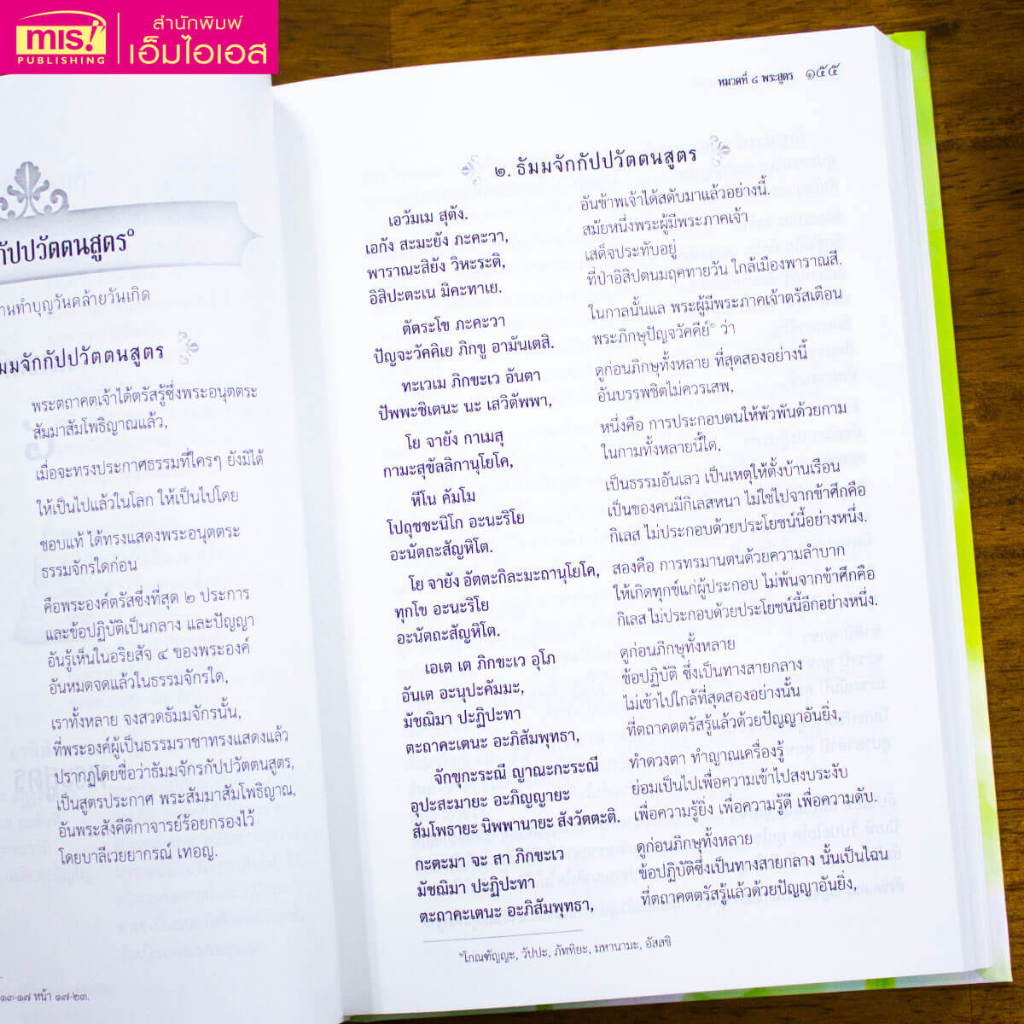 mis!
PUBLISHING
สำนักพิมพ์
เอ็มไอเอส
กัปปวัตตนสูตร๑
านทำบุญวันคล้ายวันเกิด
มมจักกัปปวัตตนสูตร
พระตถาคตเจ้าได้ตรัสรู้ซึ่งพระอนุตตระ
สัมมาสัมโพธิญาณแล้ว,
เมื่อจะทรงประกาศธรรมที่ใครๆ ยังมิได้
ให้เป็นไปแล้วในโลก ให้เป็นไปโดย
ชอบแท้ ได้ทรงแสดงพระอนุตตระ
ธรรมจักรใดก่อน
คือพระองค์ตรัสซึ่งที่สุด ๒ ประการ
และข้อปฏิบัติเป็นกลาง และปัญญา
อันรู้เห็นในอริยสัจ ๔ ของพระองค์
อันหมดจดแล้วในธรรมจักรใด,
เราทั้งหลาย จงสวดธัมมจักรนั้น,
ที่พระองค์ผู้เป็นธรรมราชาทรงแสดงแล้ว
ปรากฏโดยชื่อว่าธัมมจักรกัปปวัตตนสูตร,
เป็นสูตรประกาศ พระสัมมาสัมโพธิญาณ,
อันพระสังคีติกาจารย์ร้อยกรองไว้
โดยบาลีเวยยากรณ์ เทอญ.
๑๓-๑๗ หน้า ๑๗-๒๓.
หมวดที่ ๘ พระสูตร ๑๕๕
๒. ธัมมจักกัปปวัตตนสูตร
เอวัมเม สุตัง.
เอกัง สะมะยัง ภะคะวา,
พาราณะสิยัง วิหะระติ,
อิสิปะตะเน มิคะทาเย.
ตัตระโข ภะคะวา
ปัญจะวัคคิเย ภิกขู อามันเตสิ.
ทะเวเม ภิกขะเว อันตา
ปัพพะชิเตนะ นะ เสวิตัพพา,
โย จายัง กาเมสุ
กามะสุขัลลิกานุโยโค,
หีโน คัมโม
โปถุชชะนิโก อะนะริโย
อะนัตถะสัญหิโต.
โย จายัง อัตตะกิละมะถานุโยโค,
ทุกโข อะนะริโย
อะนัตถะสัญหิโต.
เอเต เต ภิกขะเว อุโภ
อันเต อะนุปะคัมมะ,
มัชฌิมา ปะฏิปะทา
ตะถาคะเตนะ อะภิสัมพุทธา,
จักขุกะระณี ญาณะกะระณี
อุปะสะมายะ อะภิญญายะ
สัมโพธายะ นิพพานายะ สังวัตตะติ.
กะตะมา จะ สา ภิกขะเว
มัชฌิมา ปะฏิปะทา
ตะถาคะเตนะ อะภิสัมพุทธา,
อันข้าพเจ้าได้สดับมาแล้วอย่างนี้.
สมัยหนึ่งพระผู้มีพระภาคเจ้า
เสด็จประทับอยู่
ที่ป่าอิสิปตนมฤคทายวัน ใกล้เมืองพาราณสี.
ในกาลนั้นแล พระผู้มีพระภาคเจ้าตรัสเตือน
พระภิกษุปัญจวัคคีย์๑ ว่า
ดูก่อนภิกษุทั้งหลาย ที่สุดสองอย่างนี้
อันบรรพชิตไม่ควรเสพ,
หนึ่งคือ การประกอบตนให้พัวพันด้วยกาม
ในกามทั้งหลายนี้ใด,
เป็นธรรมอันเลว เป็นเหตุให้ตั้งบ้านเรือน
เป็นของคนมีกิเลสหนา ไม่ใช่ไปจากข้าศึกคือ
กิเลส ไม่ประกอบด้วยประโยชน์นี้อย่างหนึ่ง.
สองคือ การทรมานตนด้วยความลำบาก
ให้เกิดทุกข์แก่ผู้ประกอบ ไม่พ้นจากข้าศึกคือ
กิเลส ไม่ประกอบด้วยประโยชน์นี้อีกอย่างหนึ่ง.
ดูก่อนภิกษุทั้งหลาย
ข้อปฏิบัติ ซึ่งเป็นทางสายกลาง
ไม่เข้าไปใกล้ที่สุดสองอย่างนั้น
ที่ตถาคตตรัสรู้แล้วด้วยปัญญาอันยิ่ง,
ทำดวงตา ทำญาณเครื่องรู้
ย่อมเป็นไปเพื่อความเข้าไปสงบระงับ
เพื่อความรู้ยิ่ง เพื่อความรู้ดี เพื่อความดับ.
ดูก่อนภิกษุทั้งหลาย
ข้อปฏิบัติซึ่งเป็นทางสายกลาง นั้นเป็นไฉน
ที่ตถาคตตรัสรู้แล้วด้วยปัญญาอันยิ่ง,
๑โกณฑัญญะ, วัปปะ, ภัททิยะ, มหานามะ, อัสสชิ